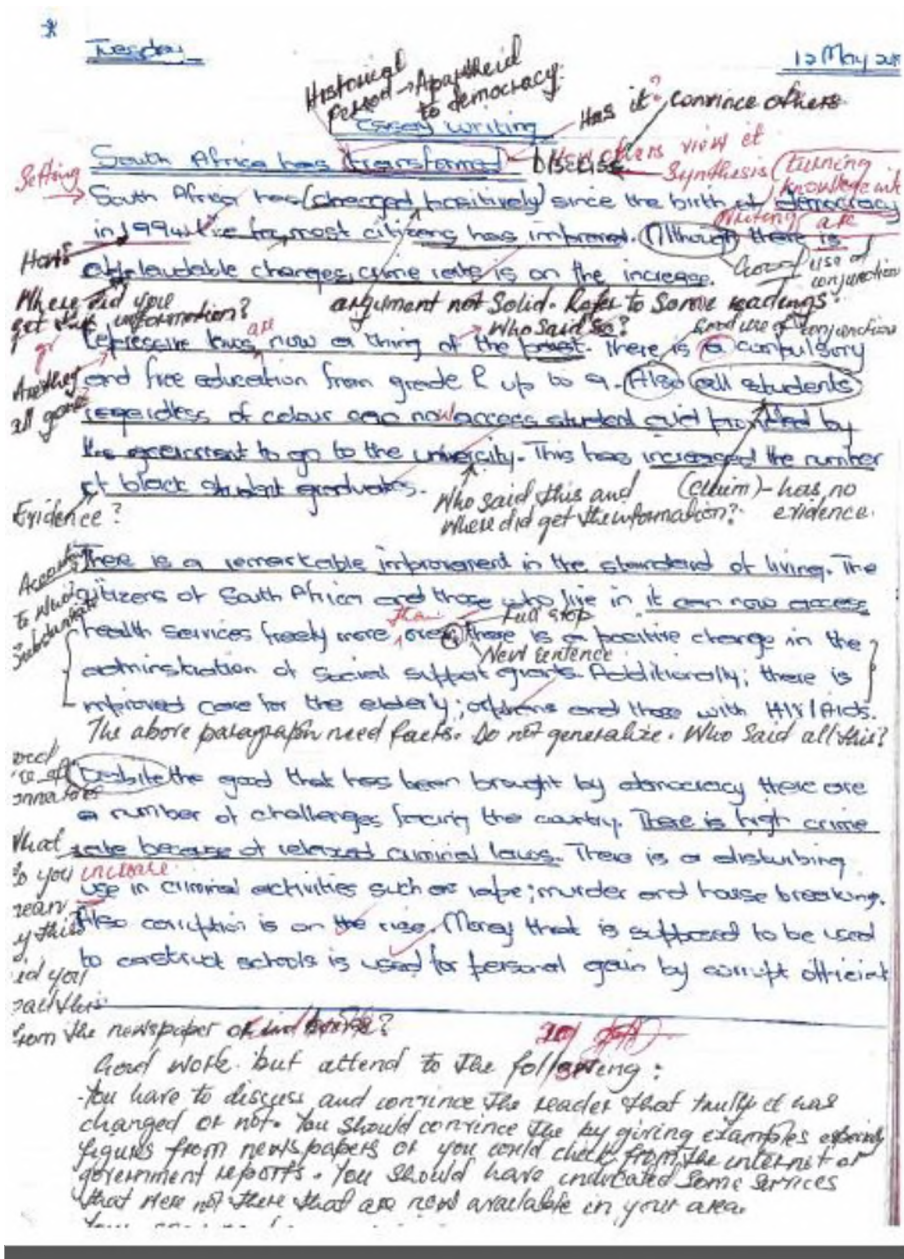 Tuesday
12 May
Historical
Period → Apartheid
to democracy.
Essay writing
Has it? convince others
South Africa has transformed Discuss
others view et
Synthesis (turning
knowledge
writing
Setting
South Africa has (changed positively) since the birth of democracy
are
in 1994. for most citizens has improved. Although there is
Good use of
conjunction
How?
applaudable changes, crime rate is on the increase.
Where did you
get this information?
argument not solid. Refer to some readings.
Who said so?
Good use of conjunction
are
Repressive laws now a thing of the past. There is a compulsory
and free education from grade R up to 9. Also all students
regardless of colour can now access student aid provided by
the government to go to the university. This has increased the number
of black student graduates.
Who said this and
where did get the information?
(claim) - has no
evidence.
Evidence?
There is a remarkable improvement in the standard of living. The
citizens of South Africa and those who live in it can now access
than
Full stop
health services freely more ever there is a positive change in the
New sentence
administration of social support grants. Additionally; there is
improved care for the elderly; orphans and those with HIV/Aids.
The above paragraph need facts. Do not generalize. Who said all this?
Despite the good that has been brought by democracy there are
a number of challenges facing the country. There is high crime
rate because of relaxed criminal laws. There is a disturbing
increase
use in criminal activities such as rape; murder and house breaking.
Also corruption is on the rise. Money that is supposed to be used
to construct schools is used for personal gain by corrupt official
What
do you
mean
by this
did you
read this
from the newspaper or
Good work but attend to the following:
- You have to discuss and convince the reader that truly it has
changed or not. You should convince the by giving examples especially
figures from newspapers or you could check from the internet or
government reports. You should have indicated some services
that were not there that are now available in your area.